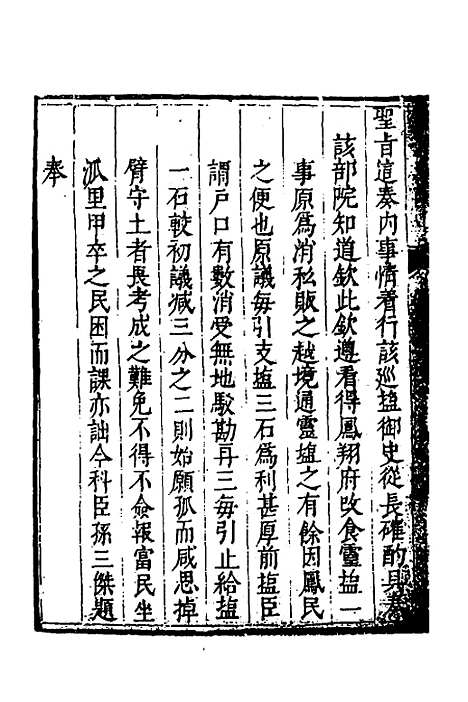 聖旨這奏内事情着行該巡塩御史從長確酌具奏
該部院知道欽此欽遵看得鳳翔府改食靈塩一
事原為消私販之越境通靈塩之有餘因鳳民
之便也原議每引支塩三石為利甚厚前塩臣
謂戶口有數消受無地駁勘再三每引止給塩
一石較初議减三分之二則始願孤而咸思掉
臂守土者畏考成之難免不得不僉報富民坐
派里甲卒之民困而課亦詘今科臣孫三傑題
奉